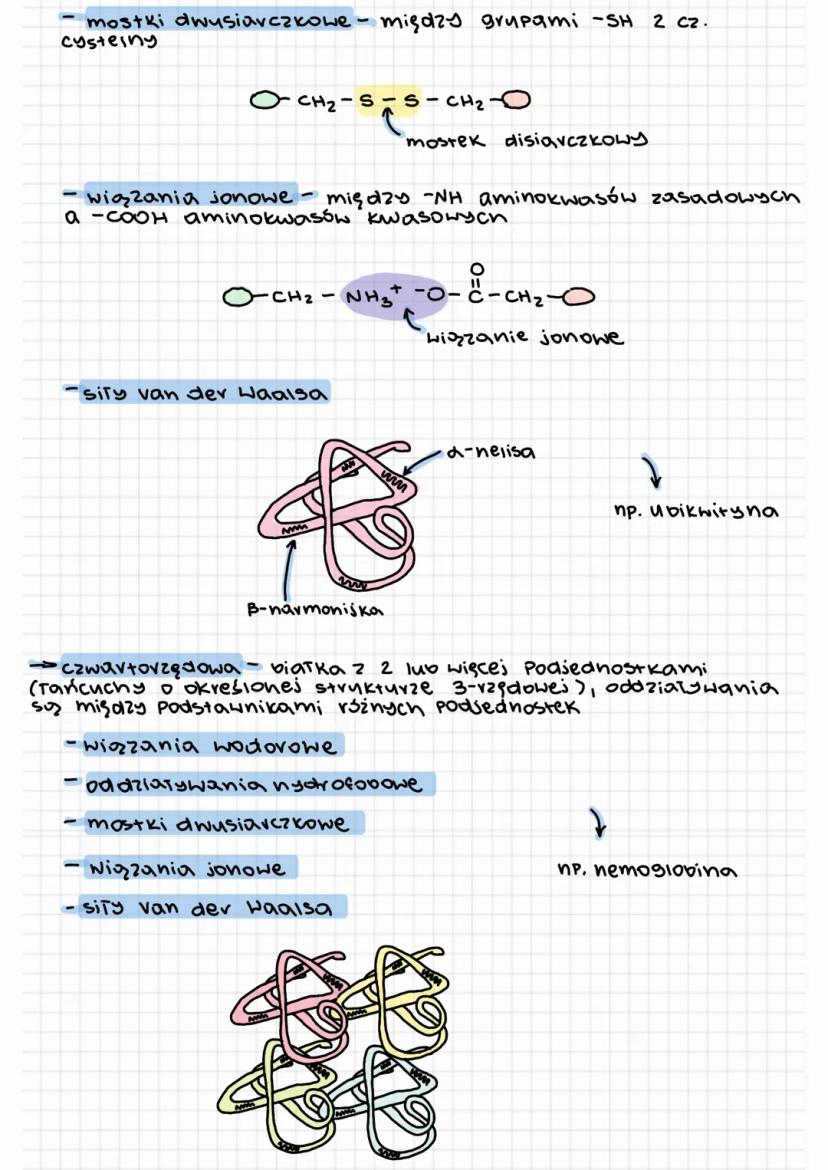 - mostki dwusiarczkowe - między grupami -SH 2 cz.
cysteiny
CH₂ - S - S - CH₂
mostek disiarczkowy
- wiązania jonowe - między -NH aminokwasów zasadowych
a -COOH aminokwasów kwasowych
O
CH₂ - NH₃⁺ ⁻O - C - CH₂
wiązanie jonowe
- siły van der Waalsa
α-helisa
np. ubikwityna
β-harmonijka
→ czwartorzędowa - białka z 2 lub więcej podjednostkami
(łańcuchy o określonej strukturze 3-rzędowej), oddziaływania
są między podstawnikami różnych podjednostek
- wiązania wodorowe
- oddziaływania hydrofobowe
- mostki dwusiarczkowe
- wiązania jonowe
np. hemoglobina
- siły van der Waalsa